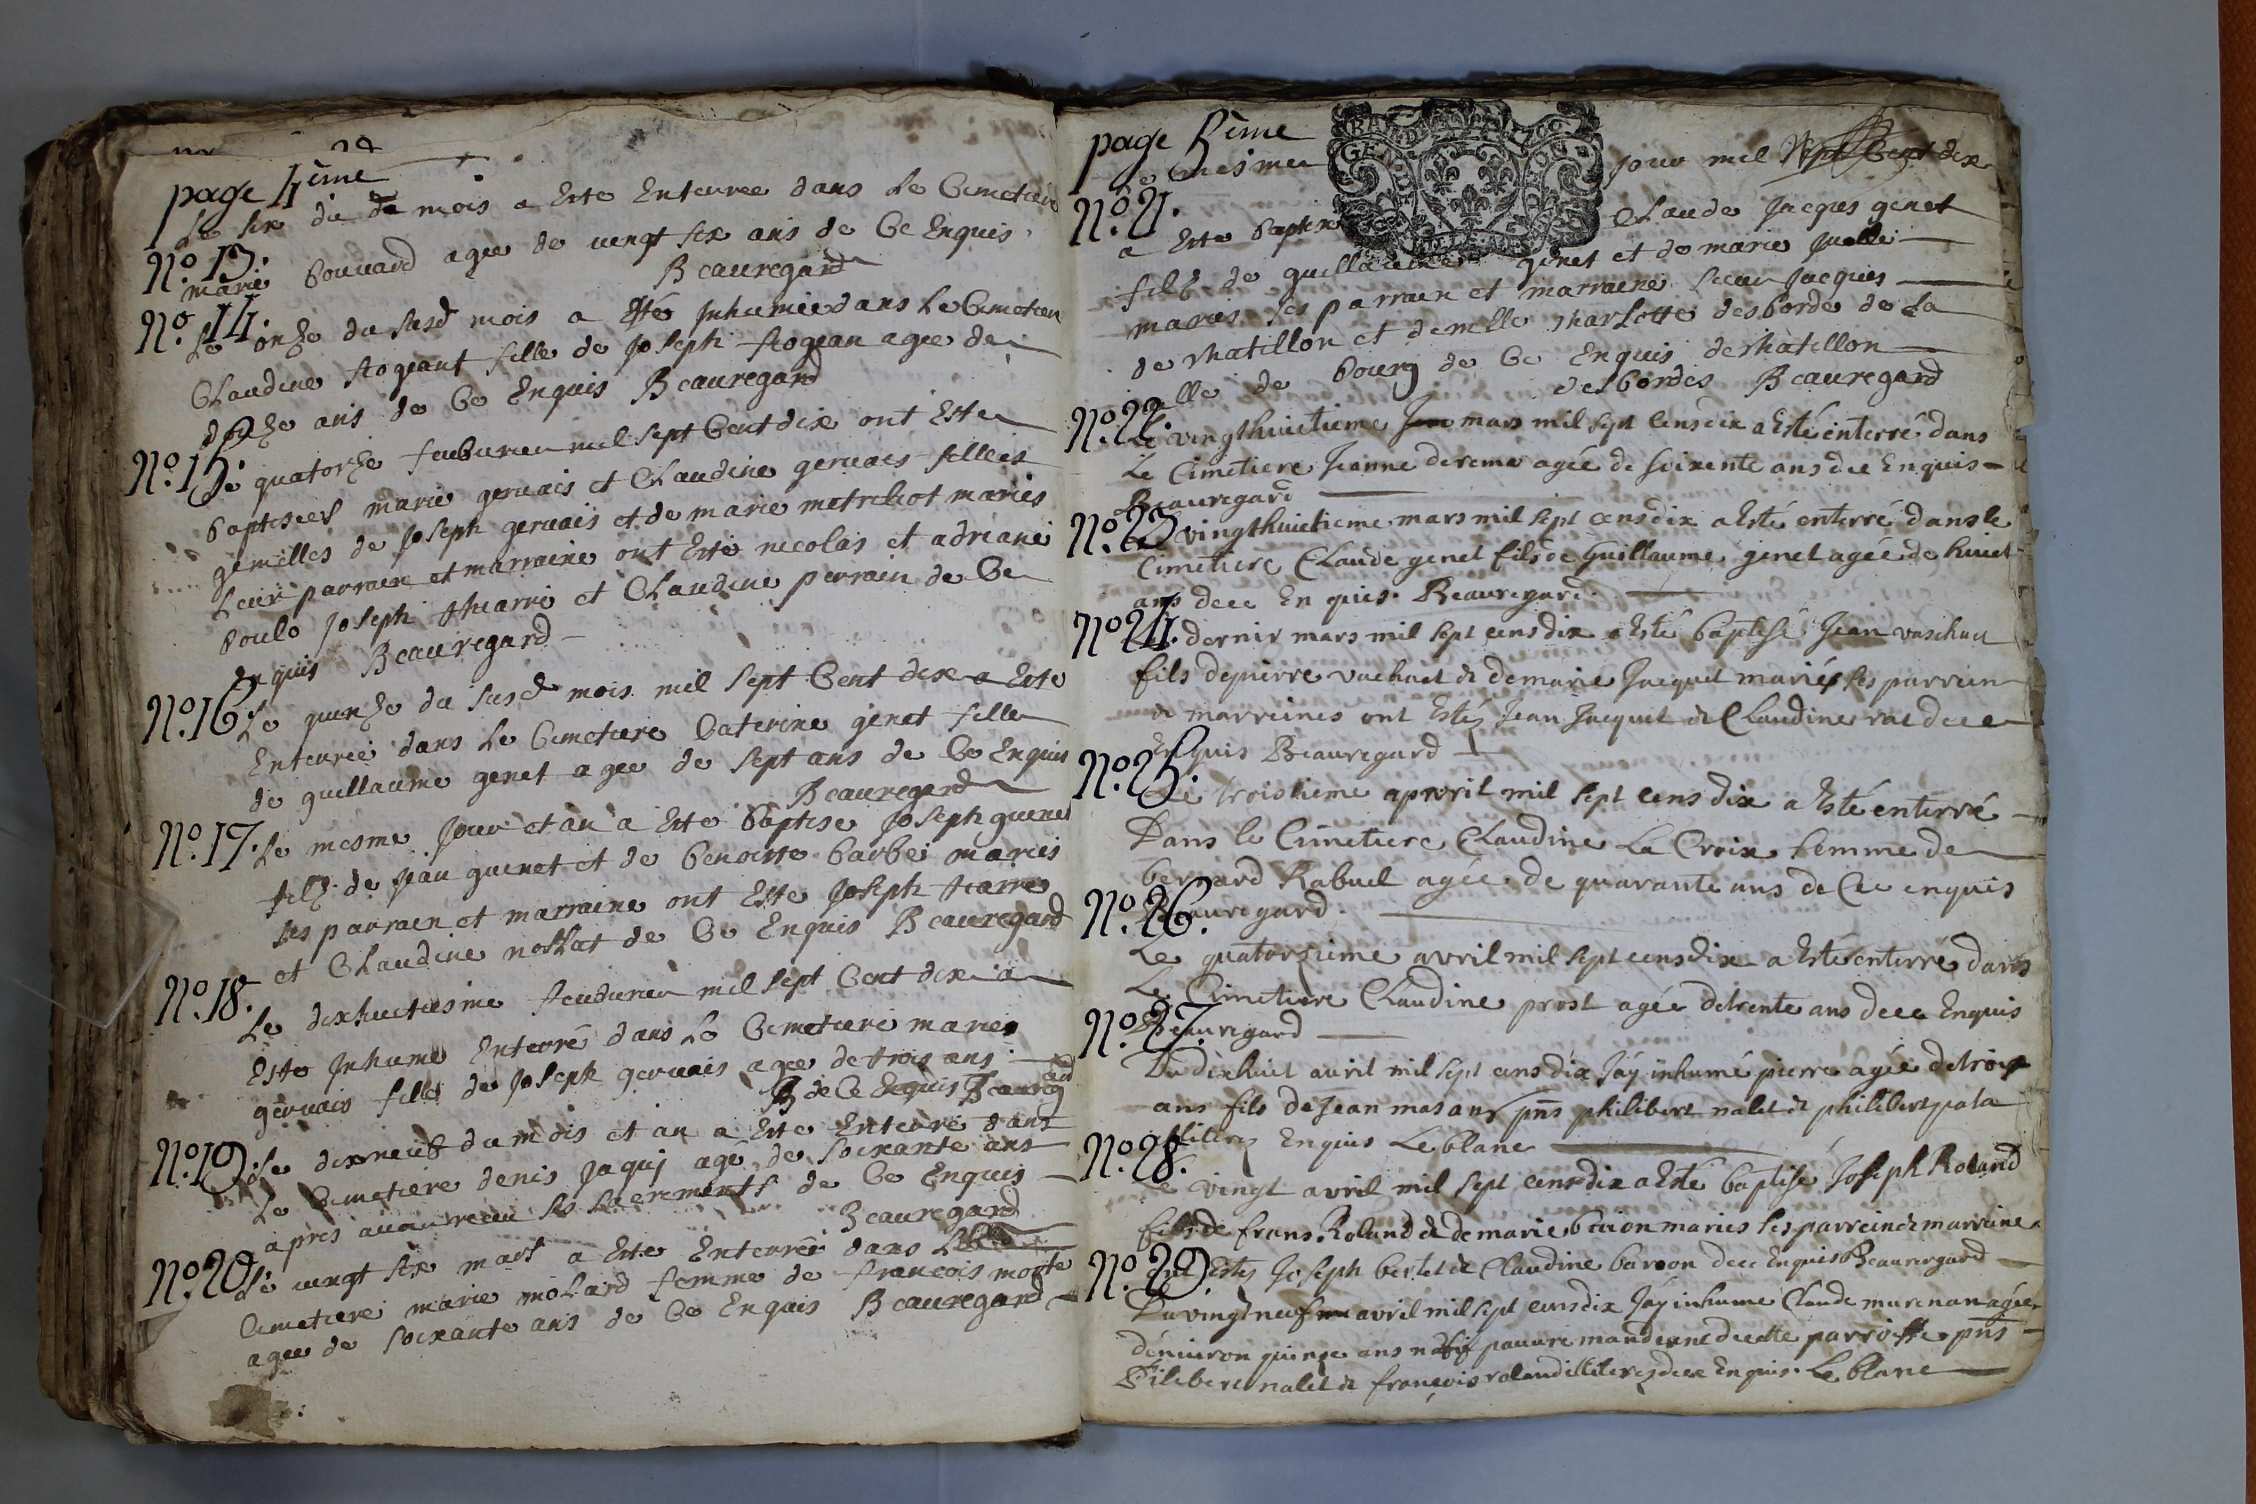 page 4ème
Le six du de mois a Este Enteuree dans Le Cemetiere
N.o 13.
marie bouuard agee de uengt six ans de Ce Enquis
Beauregard
N.o 14.
Le onze du susd mois a Esté Inhumée dans Le Cemetiere
Claudine feogeant fille de Joseph feogean agee de
douze ans de Ce Enquis Beauregard
N.o 15.
Le quatorze feuburier mil sept Cent dix ont Este
baptisees marie geruais et Claudine geruais filles
gemelles de Joseph geruais et de marie metrebot mariés
Leur parrain et marraine ont Esté necolas et adriane
boulo Joseph Huarre et Claudine perrain de Ce
Enquis Beauregard
N.o 16.
Le quenze du susd mois mil sept Cent dix a Este
Enteuree dans Le Cemetiere Caterine genet fille
de guillaume genet agee de sept ans de Ce Enquis
Beauregard
N.o 17.
Le mesme Jour et an a Esté baptise Joseph guenet
filz de Jean guenet et de benoitte barbei mariés
ses parrain et marraine ont Esté Joseph
et Claudine de Ce Enquis Beauregard
N.o 18.
Le dixhuictiesme feuburier mil sept Cent dix a
Este Inhume Enterré dans Le Cemetiere marie
geruais fille de Joseph geruais agee de trois ans
de Ce Enquis Beaureg
ard
N.o 19.
Le dixneuf du mois et an a Este Enteuré dans
Le Cemetiere denis Jaquj agé de soixante ans
apres auoir receu ses sacrements de Ce Enquis
Beauregard
N.o 20.
Le uengt six mars a Este Enteurée dans Le
Cemetiere marie molard femme de francois
agee de soixante ans de Ce Enquis Beauregard
page 5ème
Le mesme Jour mil sept Cent dix
N.o 21.
a Este baptise Claude Jacques genet
filz de guillaume genet et de marie
maries ses parrain et marraine sieur Jacques
de Chatillon et demelle Charlotte desborde de La
ville de bourg de Ce Enquis deChatillon
desbordes Beauregard
N.o 22.
Le vingthuictieme mars mil sept cens dix a Esté enterré dans
Le Cimetiere Jeanne dereme agée de soixente ans dece Enquis
Beauregard
N.o 23
Le vingthuictieme mars mil sept cens dix a Esté enterré dans le
Cimetiere Claude genet fils de Guillaume genet agée de huict
ans dece Enquis Beauregard
N.o 24.
Le dernir mars mil sept cens dix a Esté baptisé Jean vaschait
fils de pierre vachait et de marie Jacquet mariés ses parrein
et marreines ont Estés Jean Jacquet et Claudine rat dece
Enquis Beauregard
N.o 25.
Le troisieme aprvril mil sept cens dix a Esté enterré
Dans le Cimetiere Claudine La Croix femme de
bernard Rabuel agée de quarante ans de Ce enquis
N.o 26.
Beauregard
Le quatorsieme avril mil sept cens dix a Esté enterré dans
Le Cimetiere Claudine prost agée de trente ans dece Enquis
N.o 27.
Beauregard
Du dixhuit auril mil sept cens dix Jay inhumé pierre agée de trois
ans fils de Jean pñs philibert nalet et philibert pata
illitres Enquis Leblanc
N.o 28.
Le vingt avril mil sept cens dix a Esté baptisé Joseph Roland
fils de frans Roland et de marie maries ses parrein et marreine
N.o 29.
ont Estes Joseph bertet et Claudine dece Enquis Beauregard
Du vingt neuf avril mil sept cens dix Jay inhume Claude agée
dénuiron quinze ans pauure mandiane decette parroisse pñs
Filibert nalet et françois roland illiteres dece Enquis. Leblanc